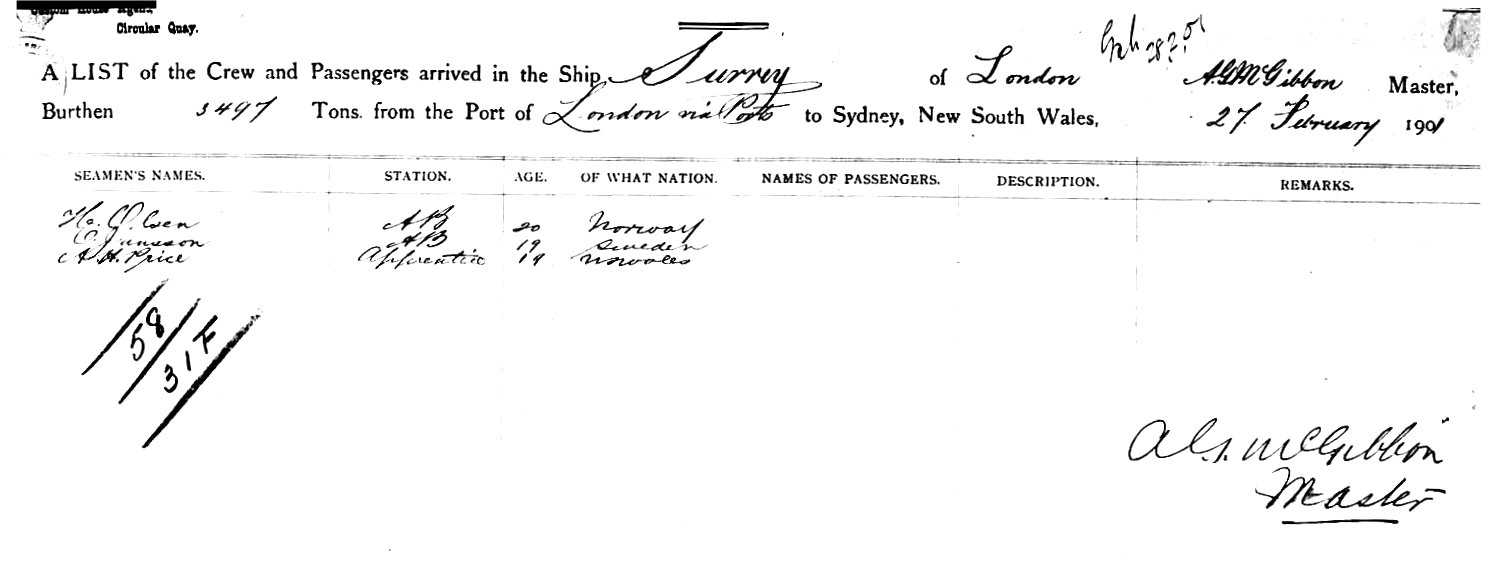 Custom House Agent,
Circular Quay.
28.2.01
A LIST of the Crew and Passengers arrived in the Ship Surrey of London A.G. McGibbon Master,
Burthen 3497 Tons. from the Port of London via Ports to Sydney, New South Wales, 27 February 1901
SEAMEN'S NAMES. STATION. AGE. OF WHAT NATION. NAMES OF PASSENGERS. DESCRIPTION. REMARKS.
H. Olsen AB 20 Norway
Jansson AB 19 Sweden
A. H. Price Apprentice 19 NSWales
58
31F
A.G. McGibbon
Master